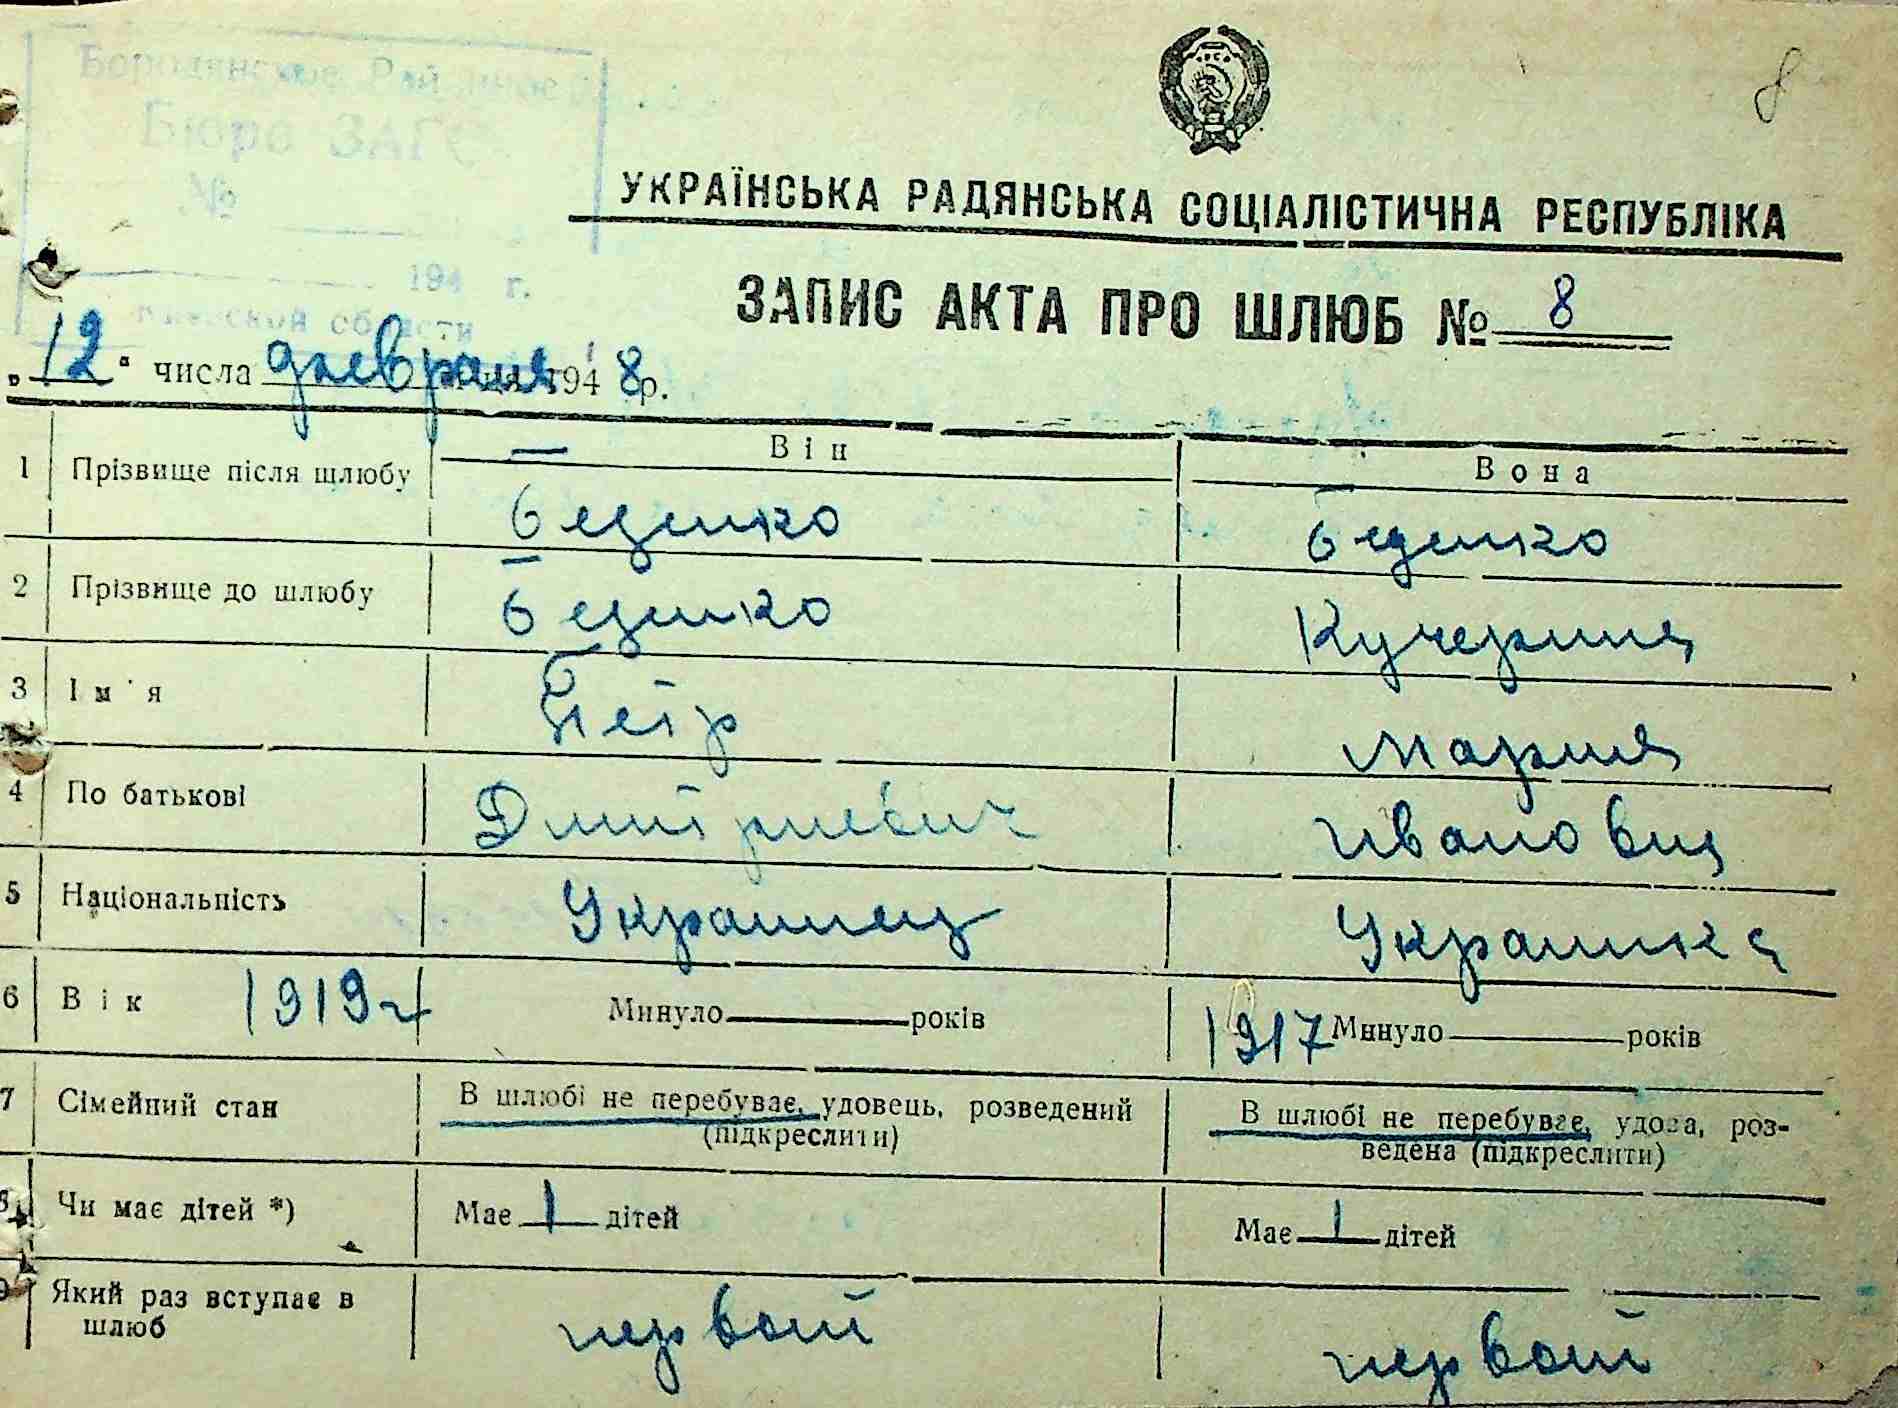 8
Бородянское Районное
Бюро ЗАГС
№
194 г.
Киевской области
УКРАЇНСЬКА РАДЯНСЬКА СОЦІАЛІСТИЧНА РЕСПУБЛІКА
ЗАПИС АКТА ПРО ШЛЮБ № 8
„12“ числа февраля 1948р.
Він Вона
1 Прізвище після шлюбу Беденко Беденко
2 Прізвище до шлюбу Беденко Кучерина
3 Ім'я Петр Мария
4 По батькові Дмитриевич Ивановна
5 Національність Украинец Украинка
6 Вік 1919 г Минуло років 1917 Минуло років
7 Сімейний стан В шлюбі не перебуває, удовець, розведений В шлюбі не перебуває, удова, роз-
(підкреслити) ведена (підкреслити)
8 Чи має дітей *) Має 1 дітей Має 1 дітей
9 Який раз вступає в
шлюб первый первый